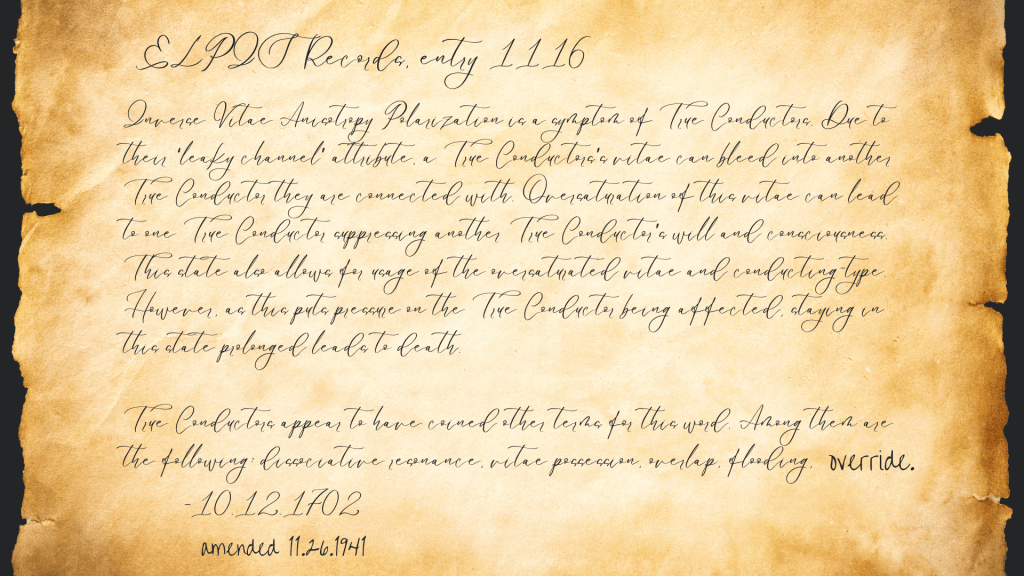 ELPIT Records, entry 11.16
Inverse Vitae Anisotropy Polarization is a symptom of True Conductors. Due to
their 'leaky channel' attribute, a True Conductors's vitae can bleed into another
True Conductor they are connected with. Oversaturation of this vitae can lead
to one True Conductor suppressing another True Conductor's will and consciousness.
This state also allows for usage of the oversaturated vitae and conducting type.
However, as this puts pressure on the True Conductor being affected, staying in
this state prolonged leads to death.
True Conductors appear to have coined other terms for this word. Among them are
the following: dissociative resonance, vitae possession, overlap, flooding, override.
-10.12.1702
amended 11.26.1941